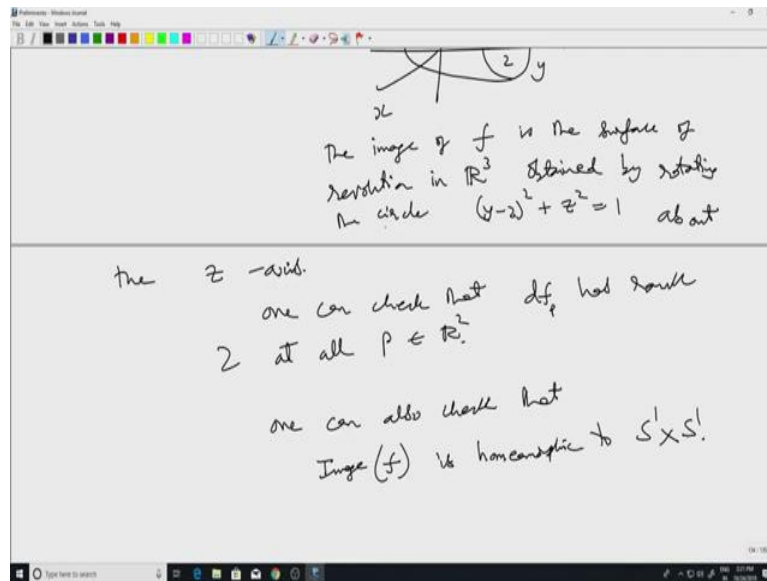 Preliminaries - Windows Journal
File Edit View Insert Actions Tools Help
B I
2 y
x
The image of f is the surface of
revolution in ℝ³ obtained by rotating
the circle (y-2)² + z² = 1 about
the z-axis.
one can check that df_p has rank
2 at all p ∈ ℝ².
one can also check that
Image (f) is homeomorphic to S¹ × S¹.
Type here to search